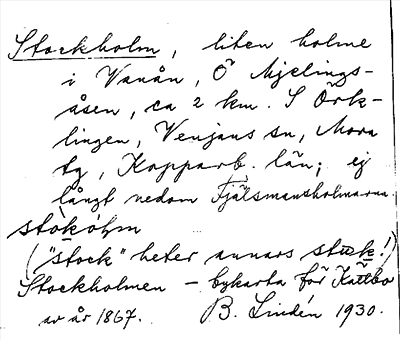 Stockholm, liten holme
i Vanån, Ö Mjelings-
åsen, ca 2 km. S Örk-
lingen, Venjans sn, Mora
tg, Kopparb. län; ej
långt nedom Fjälsmansholmarna
stòkóḷm
("stock" heter annars stuck!)
Stockholmen - bykarta för Kättbo
av år 1867. B. Lindén 1930.